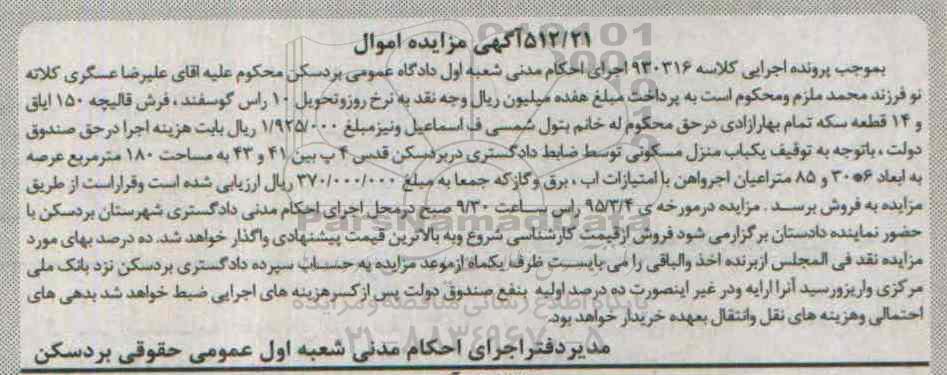 ۵۱۲/۲۱آگهی مزایده اموال
بموجب پرونده اجرایی کلاسه ۹۳۰۳۱۶ اجرای احکام مدنی شعبه اول دادگاه عمومی بردسکن محکوم علیه اقای علیرضا عسگری کلاته
نو فرزند محمد ملزم ومحکوم است به پرداخت مبلغ هفده میلیون ریال وجه نقد به نرخ روزوتحویل ۱۰ راس گوسفند ، فرش قالیچه ۱۵۰ ایاق
و ۱۴ قطعه سکه تمام بهارازادی درحق محکوم له خانم بتول شمسی ف اسماعیل ونیزمبلغ ۱/۹۲۵/۰۰۰ ریال بابت هزینه اجرا درحق صندوق
دولت ، باتوجه به توقیف یکباب منزل مسکونی توسط ضابط دادگستری دربردسکن قدس ۴ پ بین ۴۱ و ۴۳ به مساحت ۱۸۰ مترمربع عرصه
به ابعاد ۶*۳۰ و ۸۵ متراعیان اجرواهن با امتیازات اب ، برق وگازکه جمعا به مبلغ ۳۷۰/۰۰۰/۰۰۰ ریال ارزیابی شده است وقراراست از طریق
مزایده به فروش برسد . مزایده درمورخه ی ۹۵/۳/۴ راس ساعت ۹/۳۰ صبح درمحل اجرای احکام مدنی دادگستری شهرستان بردسکن با
حضور نماینده دادستان برگزارمی شود فروش ازقیمت کارشناسی شروع وبه بالاترین قیمت پیشنهادی واگذار خواهد شد. ده درصد بهای مورد
مزایده نقد فی المجلس ازبرنده اخذ والباقی را می بایست ظرف یکماه ازموعد مزایده به حساب سپرده دادگستری بردسکن نزد بانک ملی
مرکزی واریزورسید آنرا ارایه ودر غیر اینصورت ده درصد اولیه بنفع صندوق دولت پس ازکسرهزینه های اجرایی ضبط خواهد شد بدهی های
احتمالی وهزینه های نقل وانتقال بعهده خریدار خواهد بود.
مدیردفتراجرای احکام مدنی شعبه اول عمومی حقوقی بردسکن
ParsNamadData
پایگاه اطلاع رسانی مناقصه و مزایده
۰۲۱-۸۸۳۴۹۶۷۰-۵